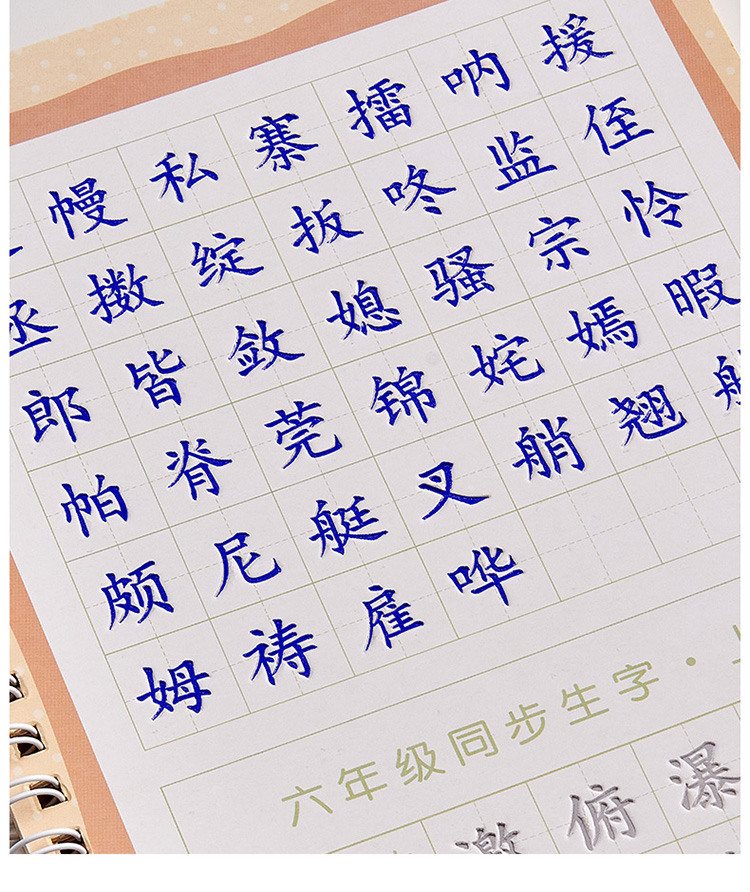 幔私寨擂呐援
丞擞绽扳咚监侄
郎皆敛媳骚宗怜
帕脊莞锦姹嫣暇
颇尼艇叉艄翘
姆祷雇哗
六年级同步生字·
俯瀑